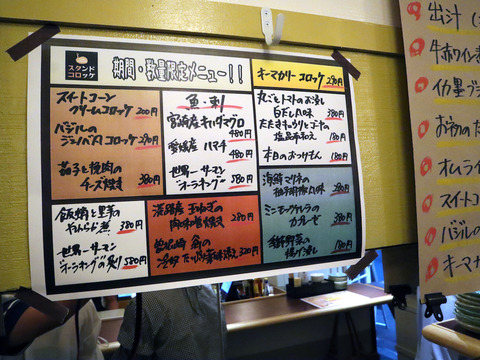 スタンド
コロッケ
期間・数量限定メニュー!!
キーマカリーコロッケ 290円
スイートコーン
クリームコロッケ 200円
バジルの
ジェノバ風コロッケ 290円
茄子と挽肉の
チーズ焼き 380円
魚・刺
宮崎産キハダマグロ
480円
愛媛産 ハマチ
480円
世界一サーモン
"オーラキング" 580円
丸ごとトマトのお浸し
白だし風味 380円
たたききゅうりとゴーヤの
塩昆布和え 180円
本日のおつけもん 180円
飯蛸と里芋の
やわらか煮 380円
世界一サーモン
"オーラキング"の炙り 580円
淡路産 玉ねぎの
肉味噌焼き 280円
たっぷり薬味添え 320円
海鮮マリネの
柚子胡椒風味 280円
ミニモッツァレラの
カプレーゼ 380円
季節野菜の
揚げ浸し 180円
出汁
牛ホワイン
イカ墨ブラ
お初の
オムライ
スイートコ
バジルの
キーマカ